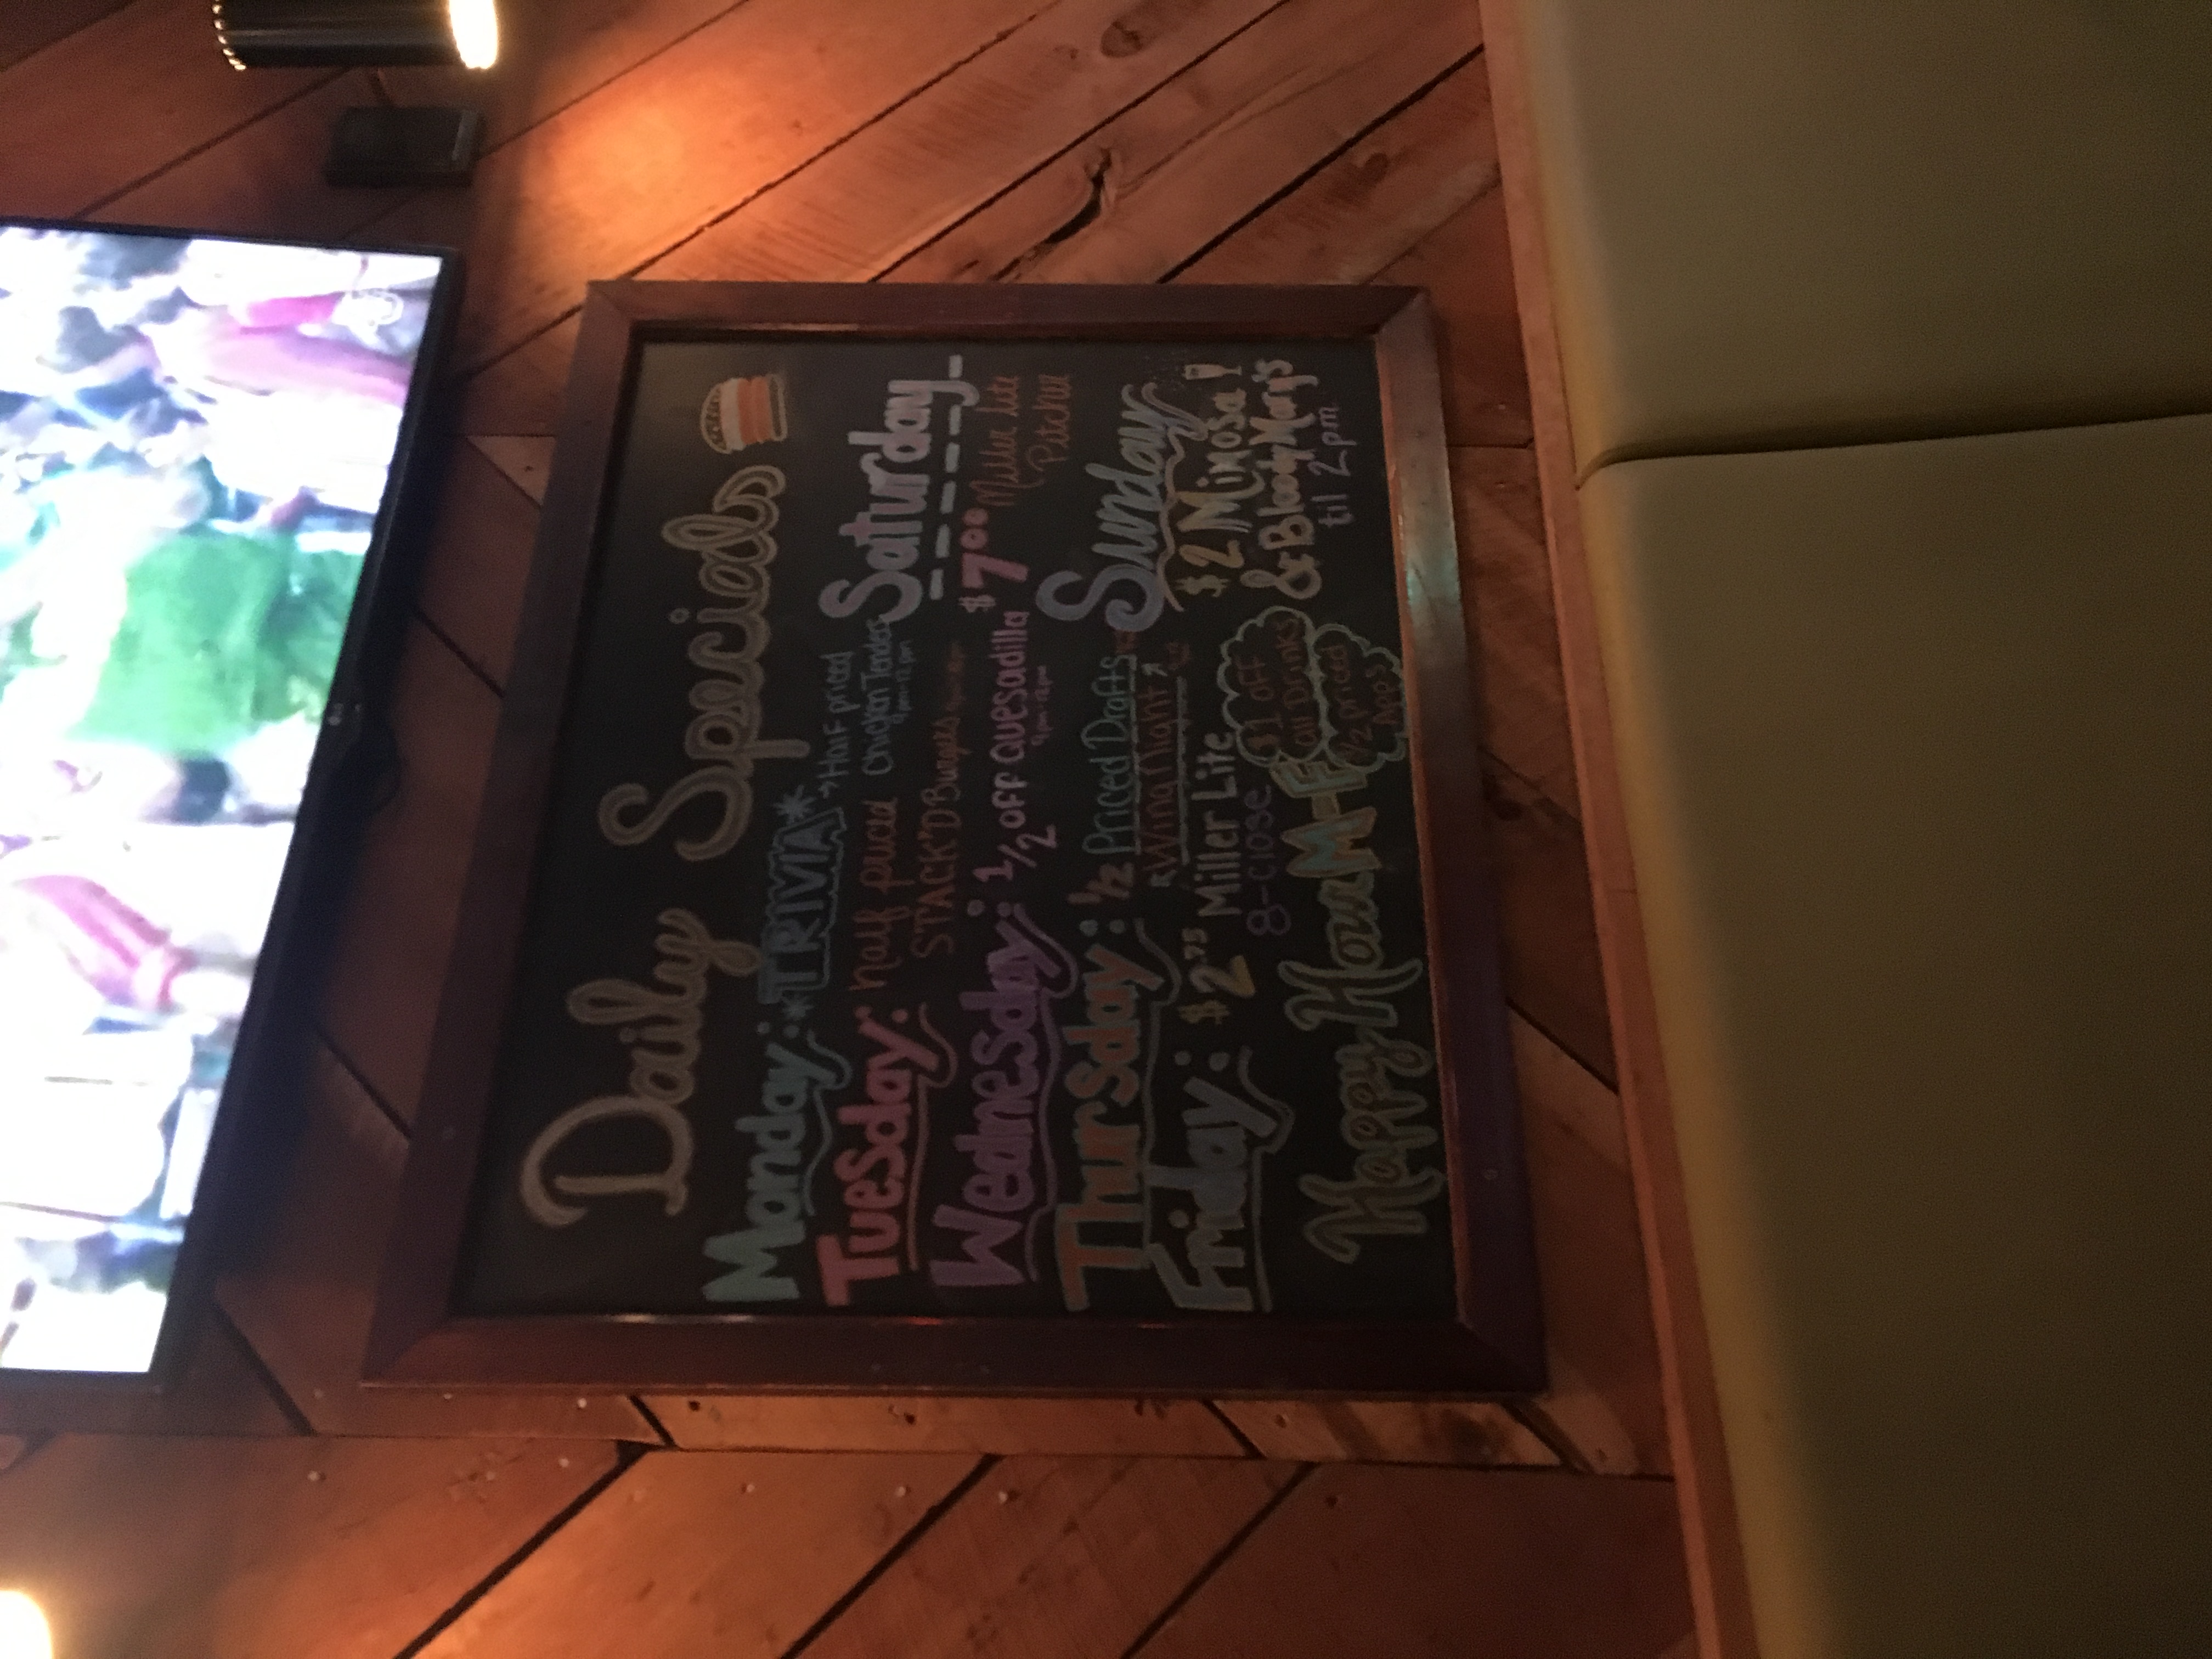 Daily Specials
Monday: *TRIVIA*
→Half priced
Chicken Tenders
9pm-12pm
Tuesday: Half priced
STACK'D Burgers
Wednesday: 1/2 OFF Quesadilla
9pm-12pm
Thursday: 1/2 Priced Drafts
Wing Night
Friday: $2.75 Miller Lite
8-close
Happy Hour M-F
$1 off
all Drinks
1/2 priced
Apps
Saturday
$7.00 Miller lite
Pitcher
Sunday
$2 Mimosa
& Bloody Mary's
til 2pm